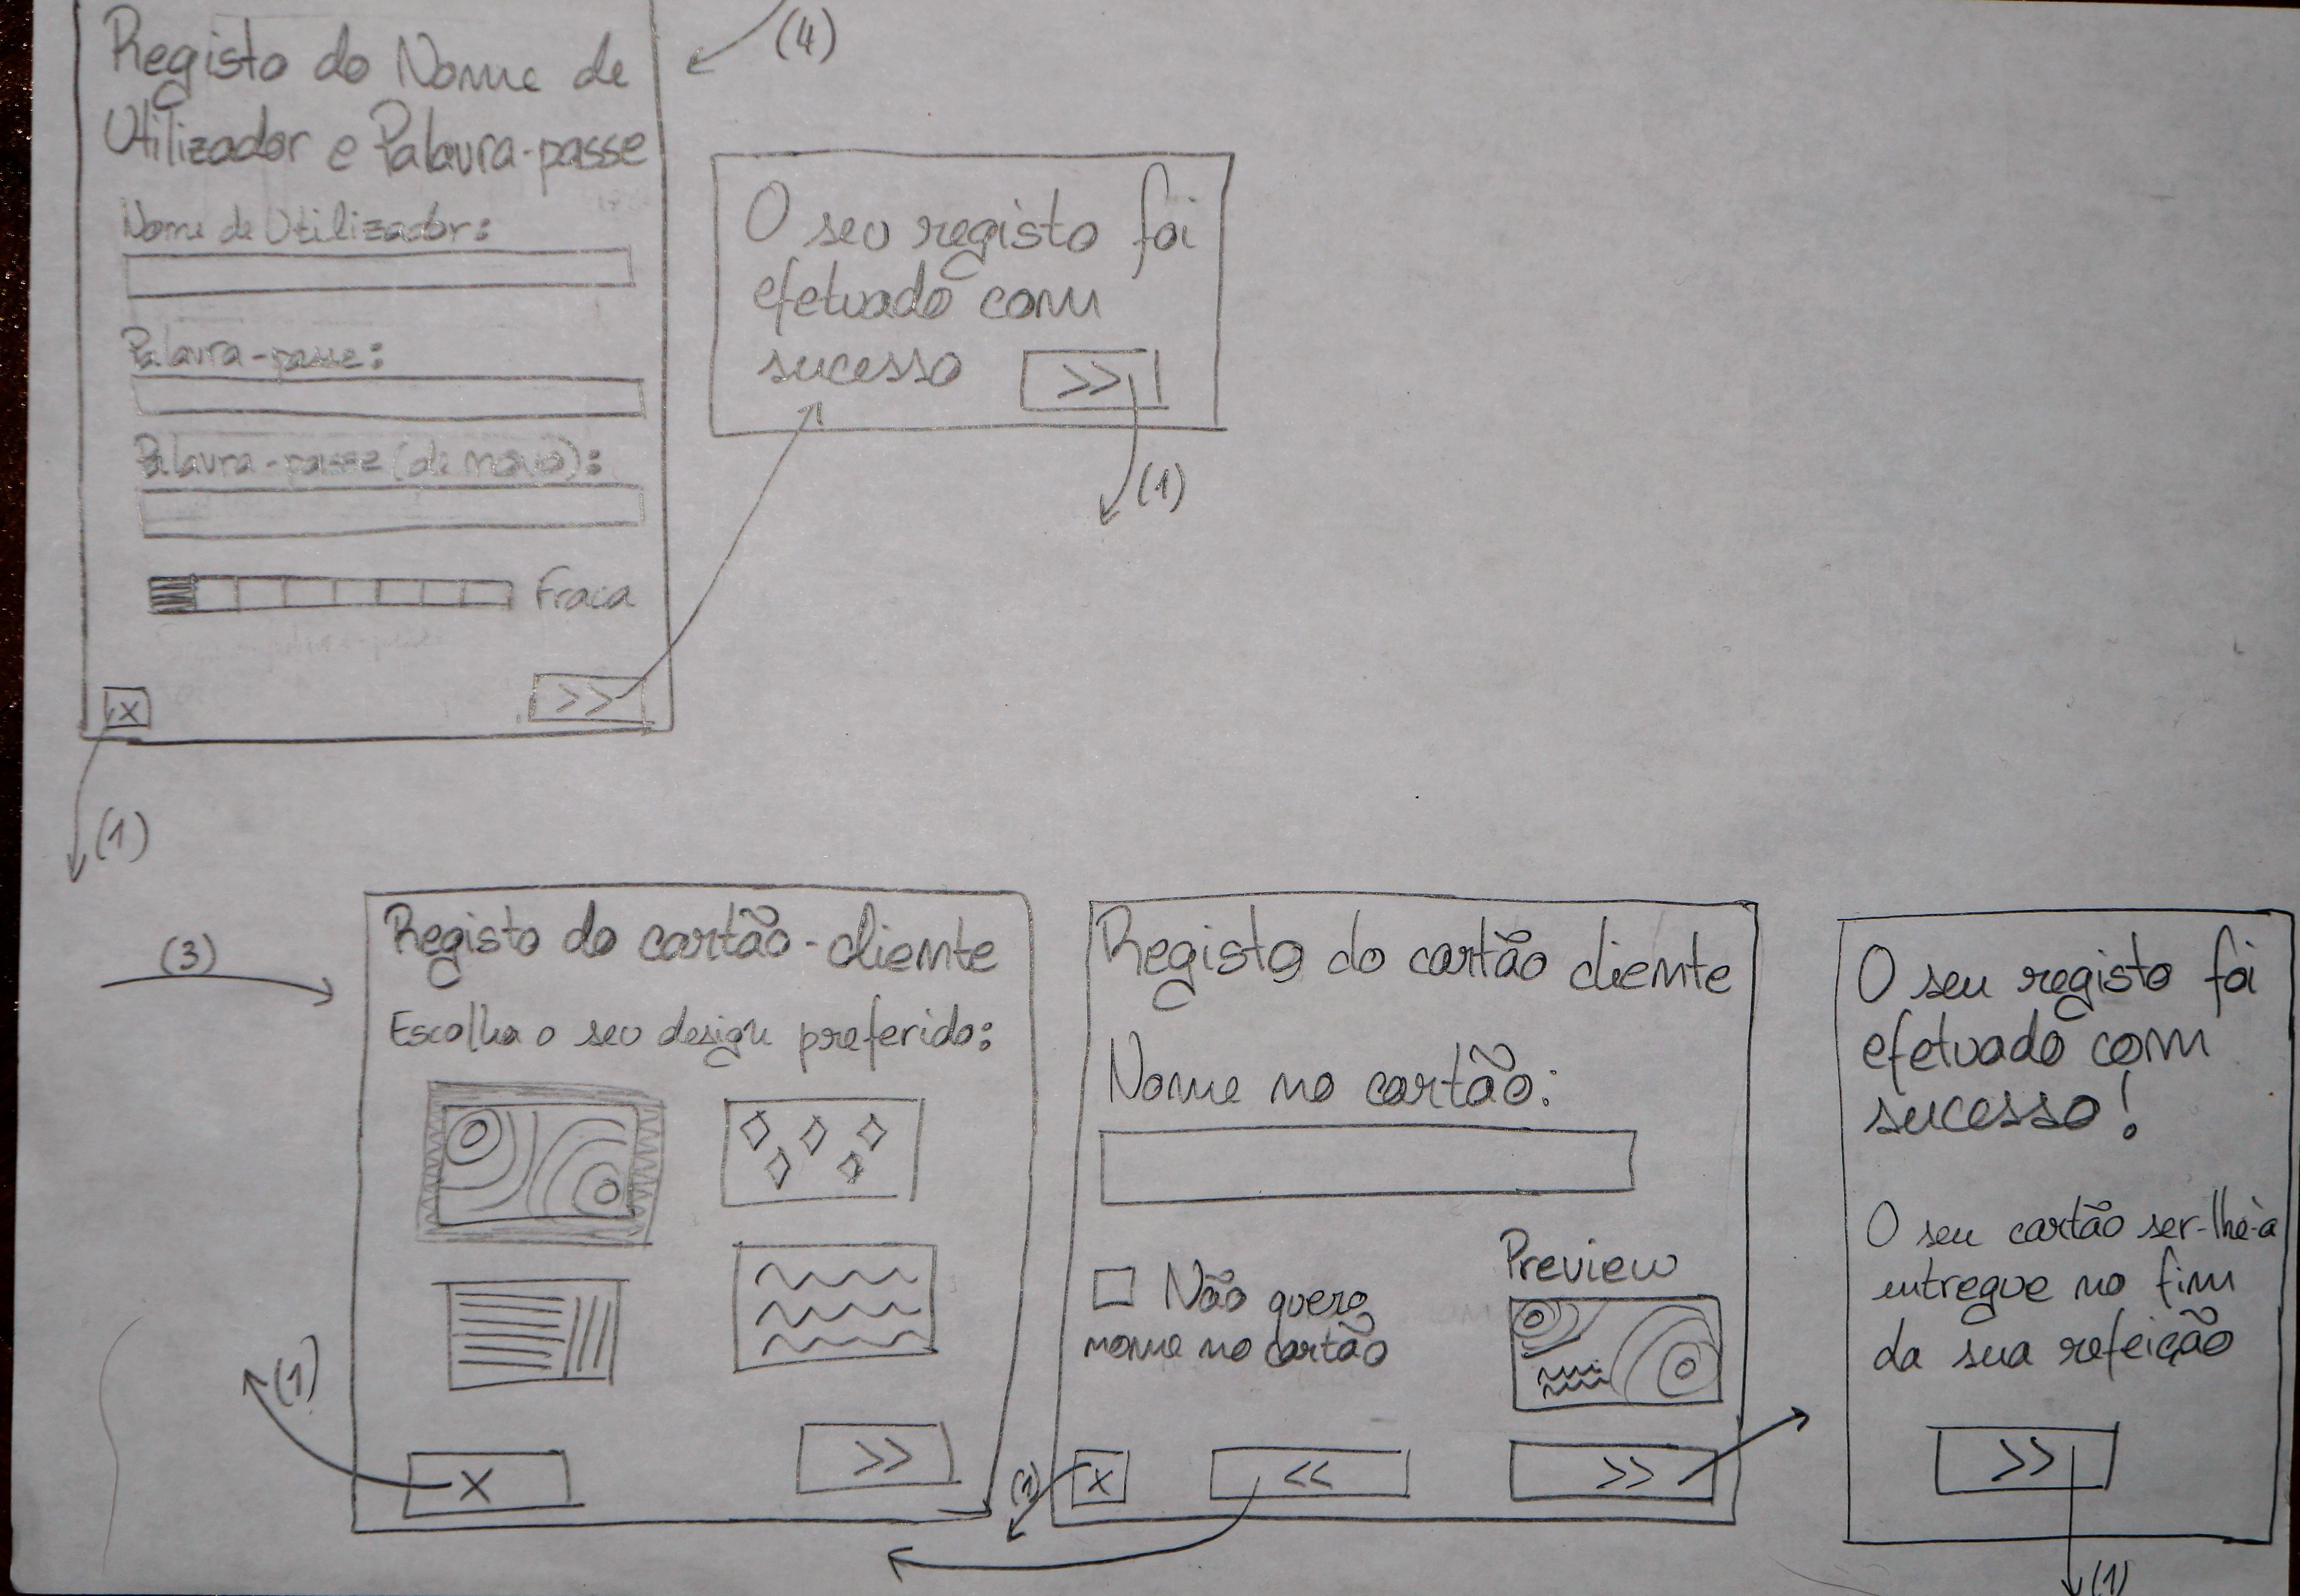 Registo do Nome de
Utilizador e Palavra-passe
Nome de Utilizador:
Palavra-passe:
Palavra-passe (de novo):
Fraca
X
>>
(1)
(4)
O seu registo foi
efetuado com
sucesso
>>
(1)
(3)
Registo do cartão-cliente
Escolha o seu design preferido:
X
>>
(1)
Registo do cartão cliente
Nome no cartão:
Não quero
nome no cartão
Preview
X
<<
>>
O seu registo foi
efetuado com
sucesso!
O seu cartão ser-lhe-à
entregue no fim
da sua refeição
>>
(1)